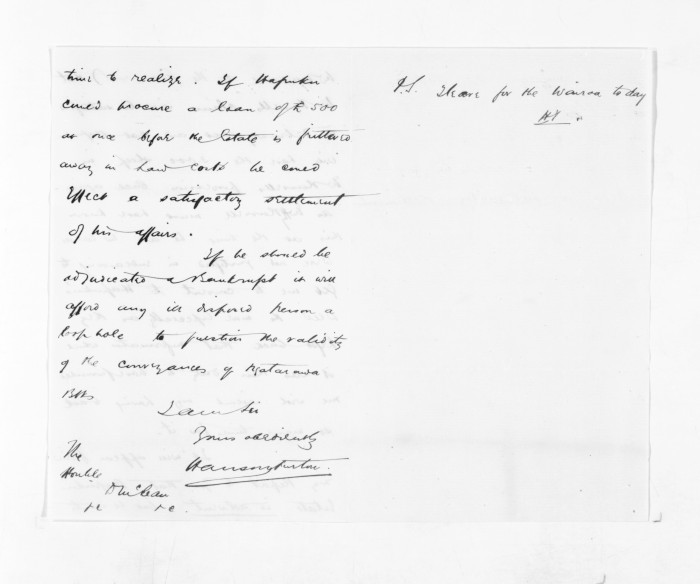 time to realize. If Hapuku
could procure a loan of £500
at once before the Estate is frittered
away in Law costs he could
effect a satisfactory settlement
of his affairs.
If he should be
adjudicated a Bankrupt it will
afford any ill disposed person a
loop hole to question the validity
of the conveyances of
I am Sir
Yours obediently
The
Honble
D McLean
P.S. I leave for the Wairoa to day